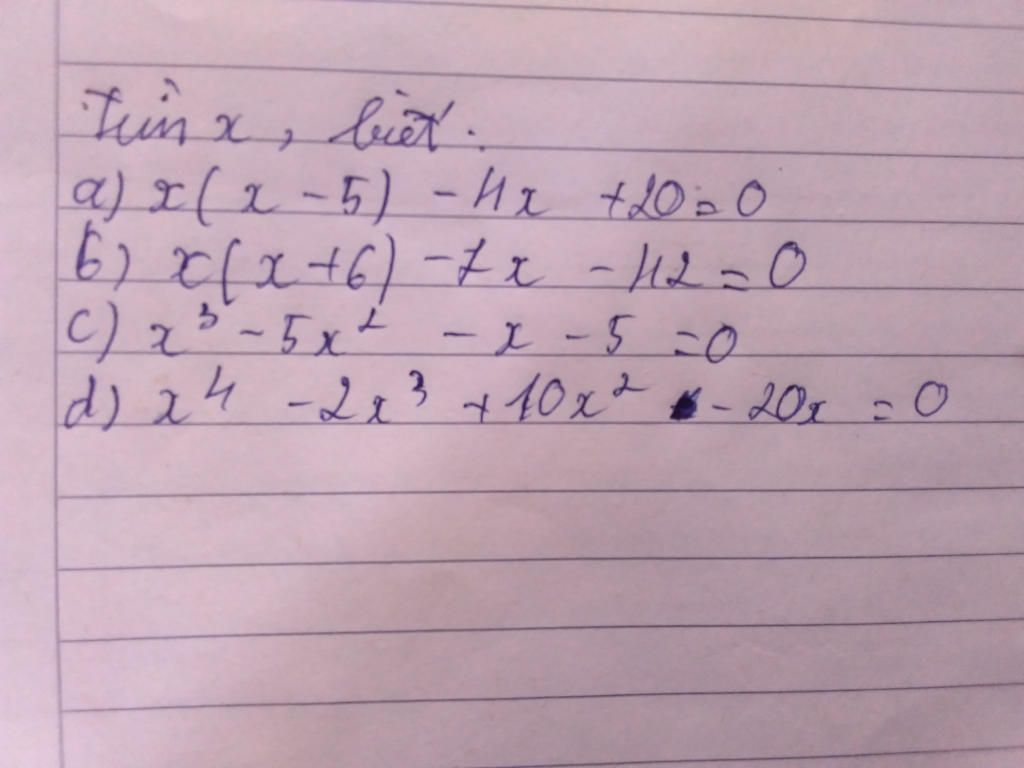 Tìm x, biết:
a) x(x - 5) - 4x + 20 = 0
b) x(x + 6) - 7x - 42 = 0
c) x³ - 5x² - x - 5 = 0
d) x⁴ - 2x³ + 10x² - 20x = 0